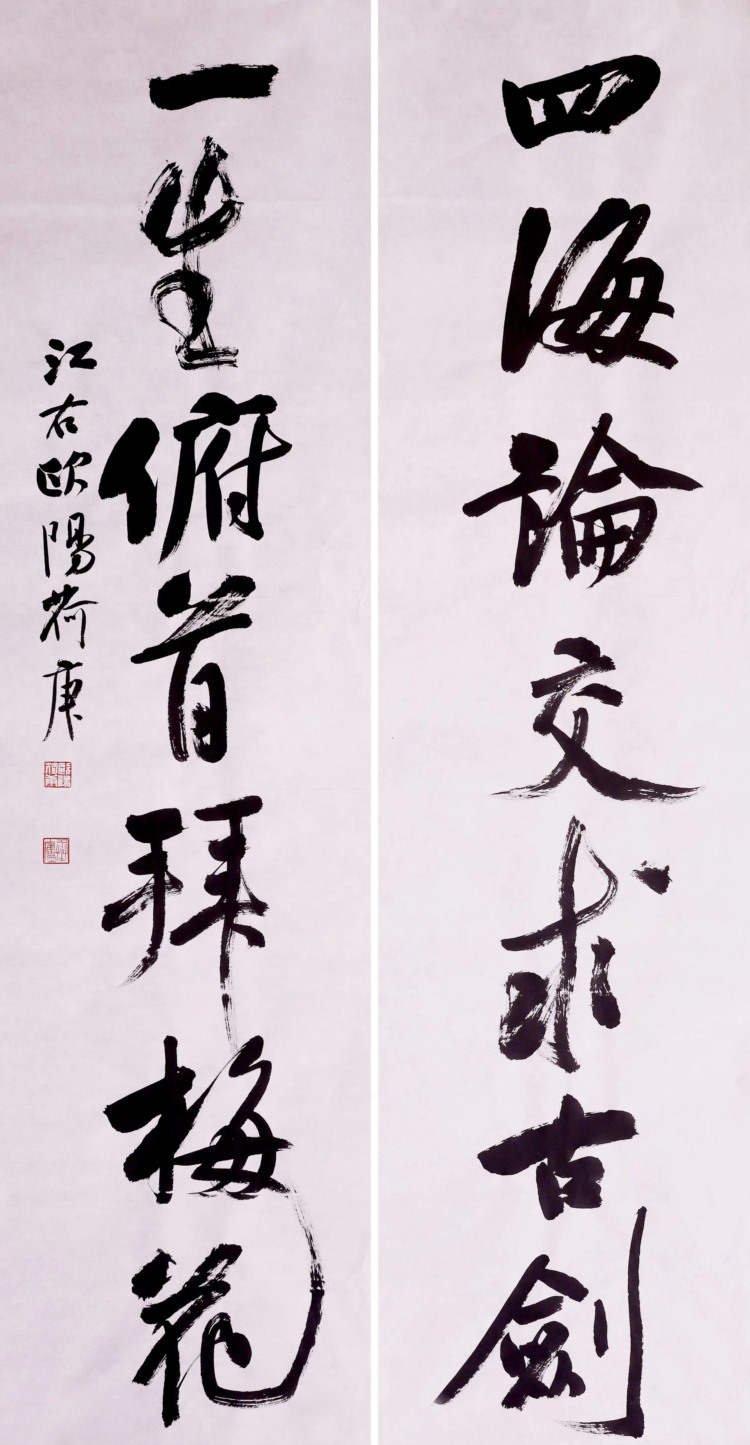 四海論交求古劍
一生俯首拜梅花
江右歐陽荷庚